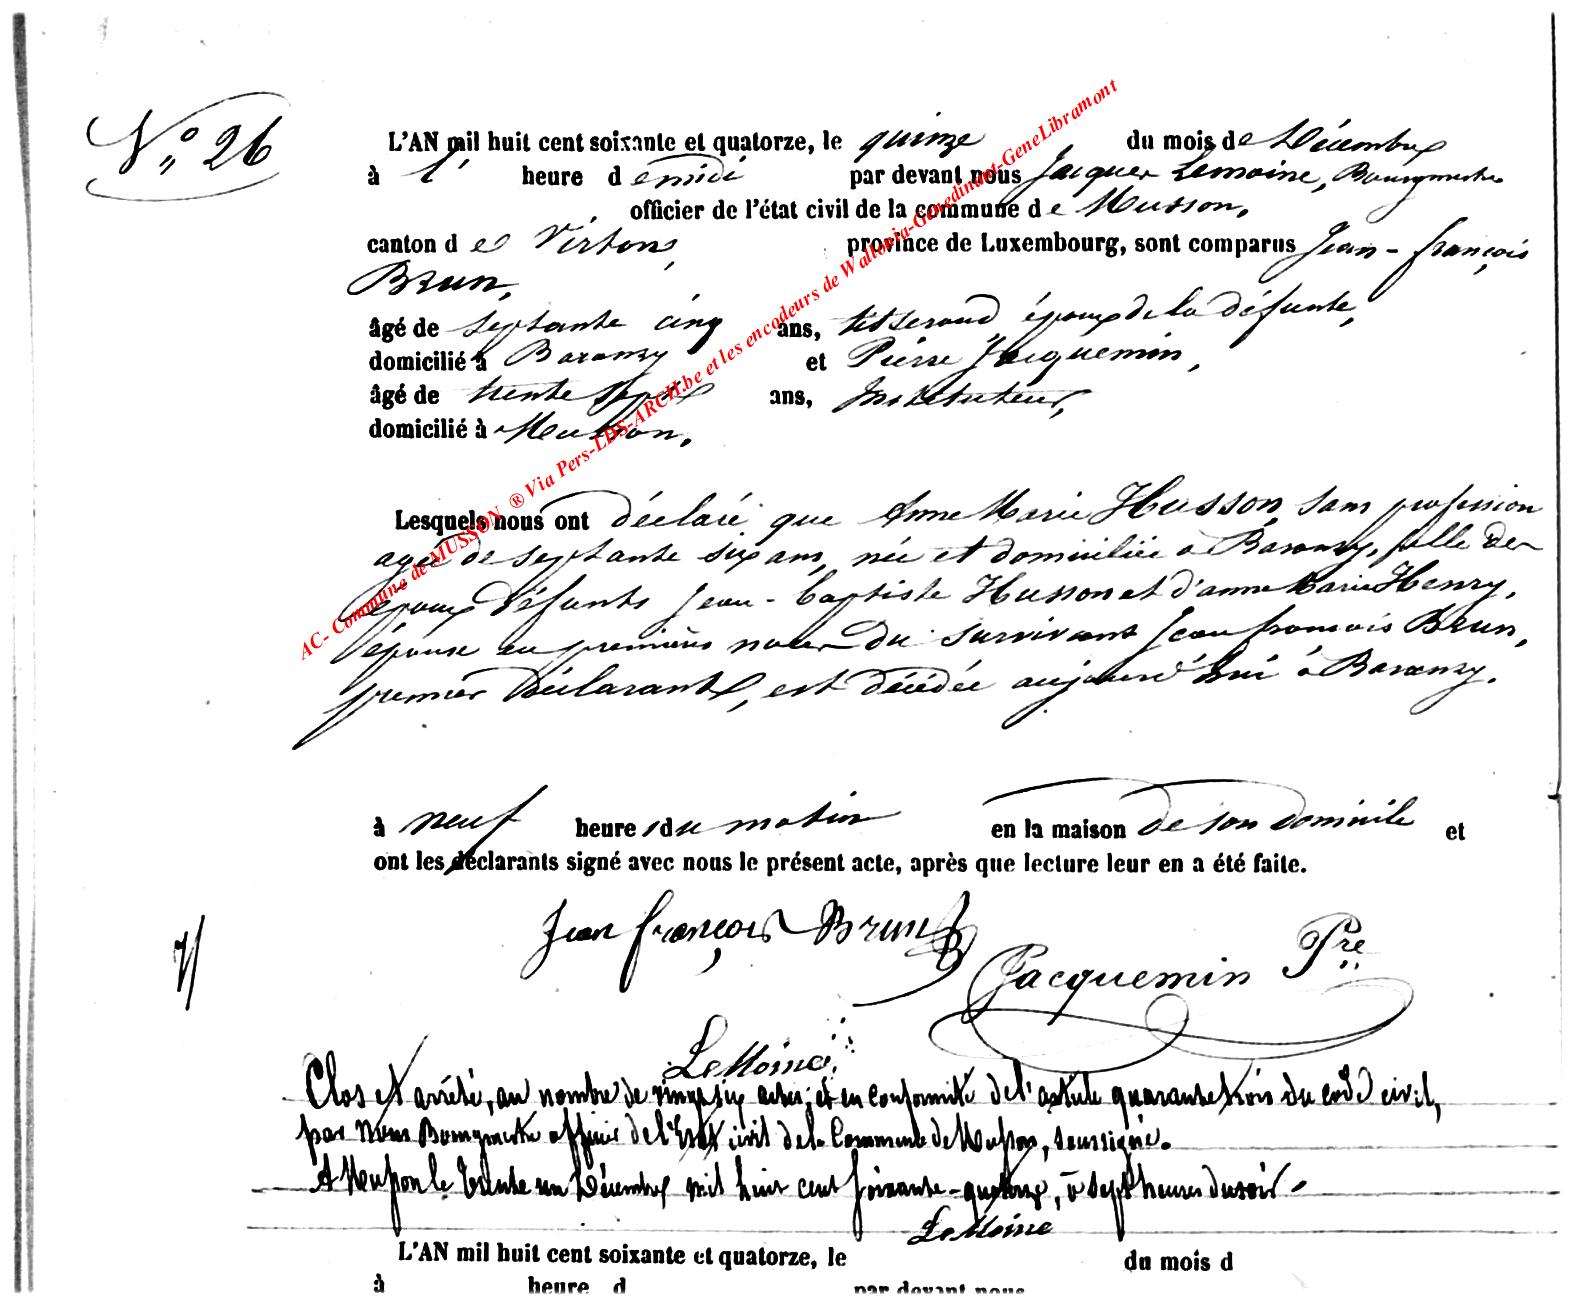 N° 26
L'AN mil huit cent soixante et quatorze, le quinze du mois de Décembre
à l' heure de midi par devant nous Jacques Lemoine, Bourgmestre
officier de l'état civil de la commune de Musson,
canton de Virton, province de Luxembourg, sont comparus Jean-françois
Brun,
âgé de septante cinq ans, tisserand, époux de la défunte,
domicilié à Baranzy et Pierre Jacquemin,
âgé de trente sept ans, Instituteur,
domicilié à Musson,
Lesquels nous ont déclaré que Anne Marie Husson, sans profession
agée de septante six ans, née et domiciliée à Baranzy, fille des
époux défunts Jean-baptiste Husson et d'anne Marie Henry,
épouse en premières noces du survivant Jean françois Brun,
premier Déclarant, est décédée aujourd'hui à Baranzy,
à neuf heures du matin en la maison de son domicile et
ont les déclarants signé avec nous le présent acte, après que lecture leur en a été faite.
Jean françois Brun
Jacquemin Pre
LeMoine
Clos et arrêté, au nombre de vingt six actes, et en conformité de l'article quarante trois du code civil,
par Nous Bourgmestre officier de l'Etat civil de la Commune de Musson, soussigné.
A Musson le trente un Décembre mil huit cent soixante-quatorze, à sept heures du soir.
LeMoine
L'AN mil huit cent soixante et quatorze, le du mois d
à heure d par devant nous
AC- Commune de MUSSON ® Via Pers-LDS-ARCH.be et les encodeurs de Wallonia-Genedinant-GeneLibramont